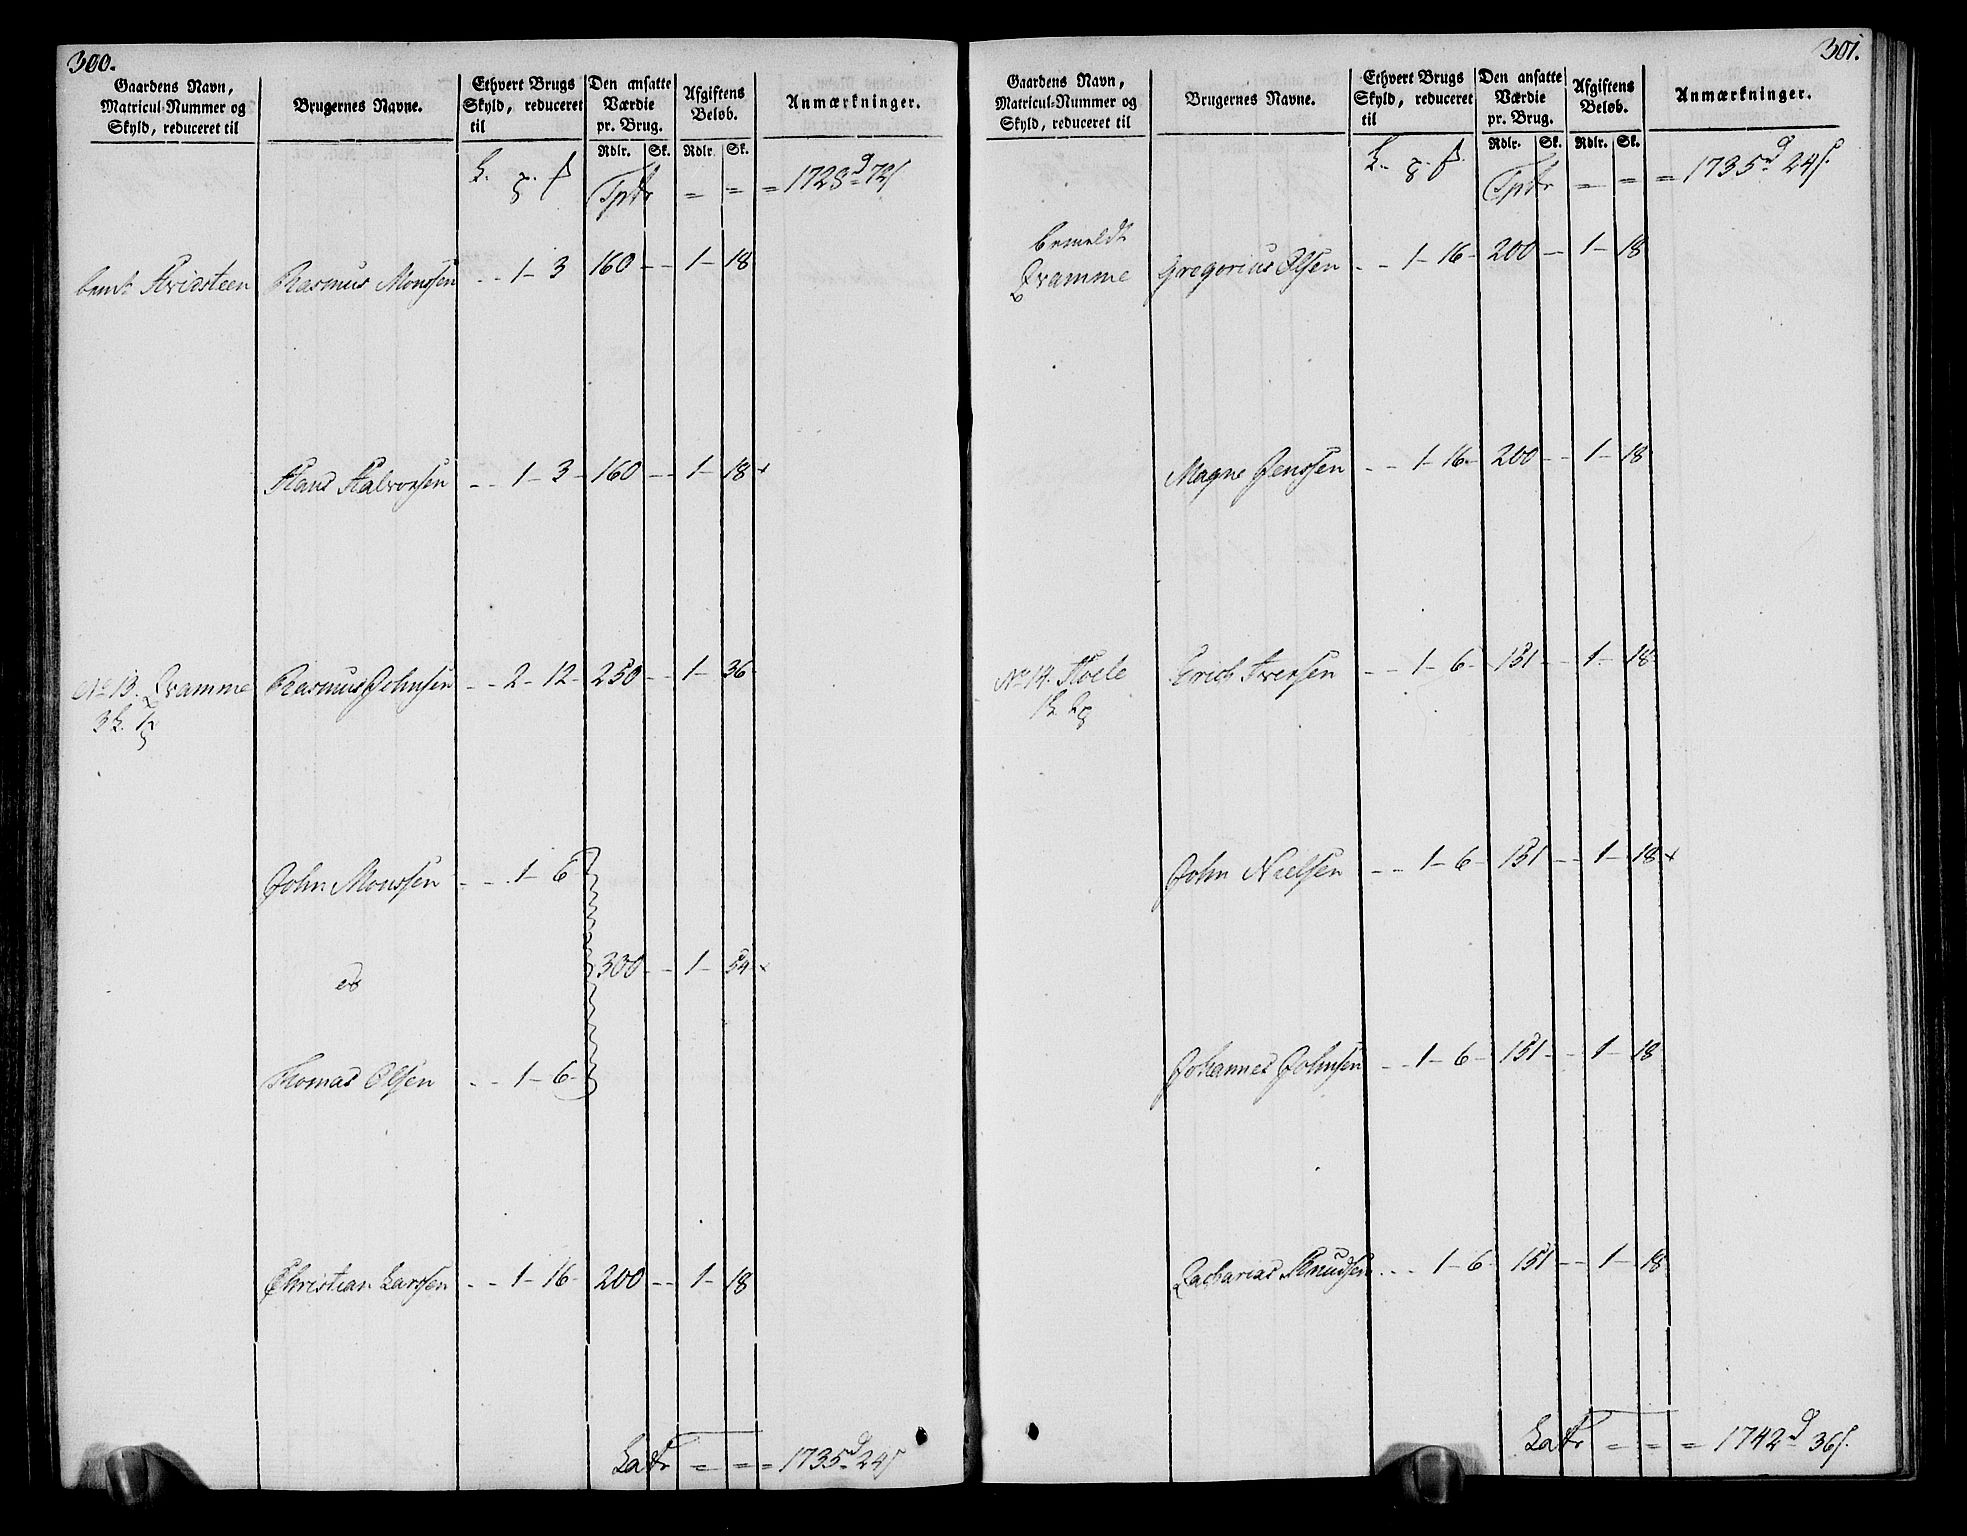 300.
Gaardens Navn, Matricul-Nummer og Skyld, reduceret til
Brugernes Navne.
Ethvert Brugs Skyld, reduceret til
Den ansatte Værdie pr. Brug.
Afgiftens Beløb.
Anmærkninger.
Rdlr. Sk. Rdlr. Sk.
Tptr = = = 1728d 72s
bemt Hvidsteen Rasmus Monssen - - 1 - 3 160 - - 1 - 18
Hans Halvorsen - - 1 - 3 - 160 - - 1 - 18 +
No 13. Qvamme Rasmus Johnsen - - 2 - 12 - 250 - - 1 - 36
John Monssen - - 1 - 6
et 300 - - 1 - 54 +
Thomas Olsen - - 1 - 6 -
Christian Larssen - - 1 - 16 - 200 - - 1 - 18
Latr = = = 1735d 24s
301.
Gaardens Navn, Matricul-Nummer og Skyld, reduceret til
Brugernes Navne.
Ethvert Brugs Skyld, reduceret til
Den ansatte Værdie pr. Brug.
Afgiftens Beløb.
Anmærkninger.
Rdlr. Sk. Rdlr. Sk.
Tptr = = = 1735d 24s.
bemeldt
Qvamme Gregorius Olsen - - 1 - 16 - 200 - - 1 - 18
Magne Jenssen - - 1 - 16 - 200 - - 1 - 18
No 14. Hole Erich Iversen - - 1 - 6 - 151 - - 1 - 18
John Nielsen - - 1 - 6 - 151 - - 1 - 18 +
Johannes Johnsen - - 1 - 6 - 151 - - 1 - 18
Zacharias Knudsen - - 1 - 6 - 151 - - 1 - 18
Latr = = = 1742d 36s.